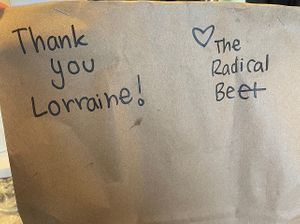 Thank
you
Lorraine!
♡ The
Radical
Beet